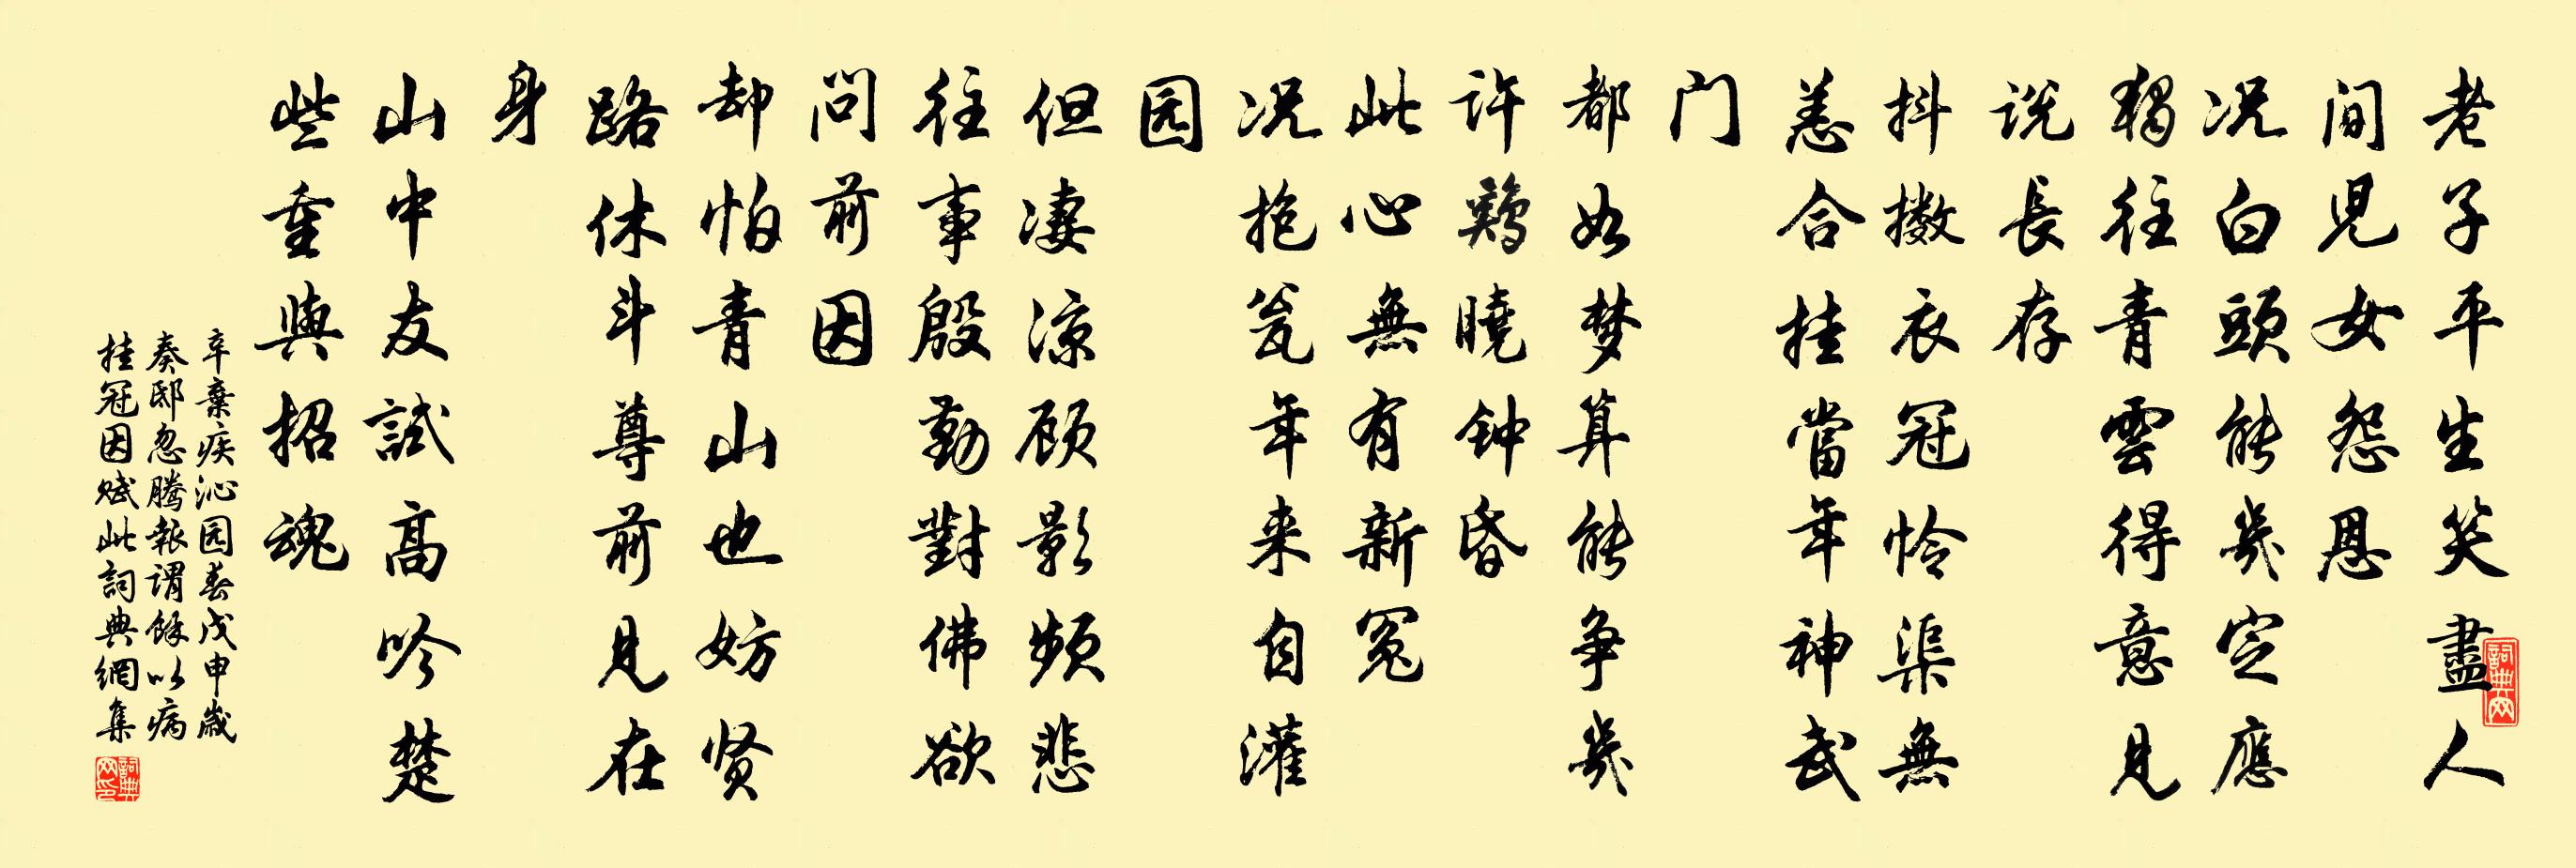 老子平生笑盡人
間兒女怨恩
况白頭能幾定應
獨往青雲得意見
說長存
抖擻衣冠怜渠無
恙合挂當年神武
门
都如梦算能争幾
許鷄曉钟昏
此心無有新冤
况抱瓮年来自灌
园
但凄凉顾影频悲
往事殷勤對佛欲
问前因
却怕青山也妨贤
路休斗尊前見在
身
山中友試高吟楚
些重與招魂
辛棄疾沁园春戊申歲
奏邸忽騰報謂餘以病
挂冠因赋此詞典網集
詞典网
詞典网印